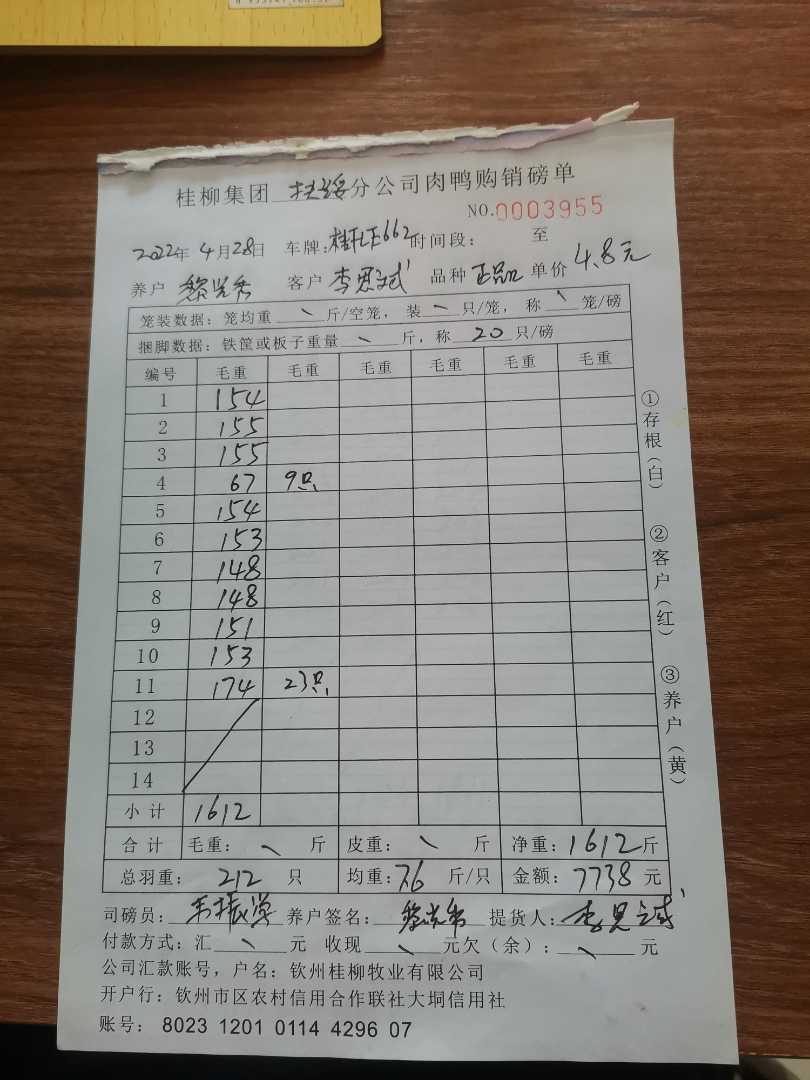 桂柳集团 扶绥 分公司肉鸭购销磅单
NO.0003955
2022年 4月28日 车牌: 时间段: 至
养户 客户 品种 正品 单价 4.8元
笼装数据: 笼均重 \ 斤/空笼, 装 \ 只/笼, 称 \ 笼/磅
捆脚数据: 铁筐或板子重量 \ 斤, 称 20 只/磅
编号 毛重 毛重 毛重 毛重 毛重 毛重
1 154
2 155
3 155
4 67 9只
5 154
6 153
7 148
8 148
9 151
10 153
11 174 23只
12
13
14
小计 1612
合计 毛重: \ 斤 皮重: \ 斤 净重: 1612斤
总羽重: 212 只 均重: 7.6 斤/只 金额: 7738 元
司磅员: 养户签名: 提货人:
付款方式: 汇 \ 元 收现 \ 元欠(余): \ 元
公司汇款账号, 户名: 钦州桂柳牧业有限公司
开户行: 钦州市区农村信用合作联社大垌信用社
账号: 8023 1201 0114 4296 07
①存根(白)
②客户(红)
③养户(黄)